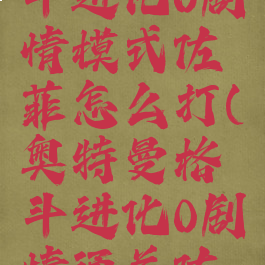 斗进化0剧
情模式佐
菲怎么打(
奥特曼格
斗进化0剧